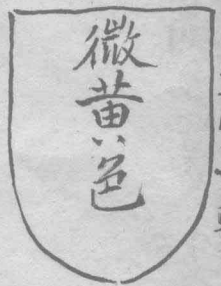 微黄色